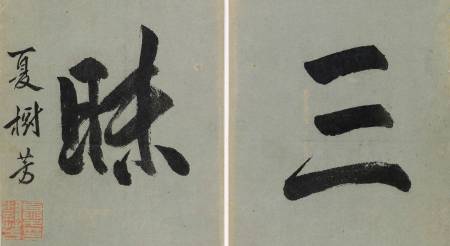 三
昧
夏樹芳